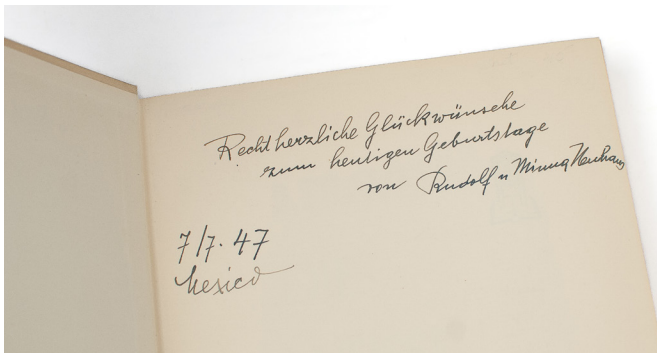 Recht herzliche Glückwünsche
zum heutigen Geburtstage
von Rudolf u Minna Neuhaus
7/7. 47
Mexico